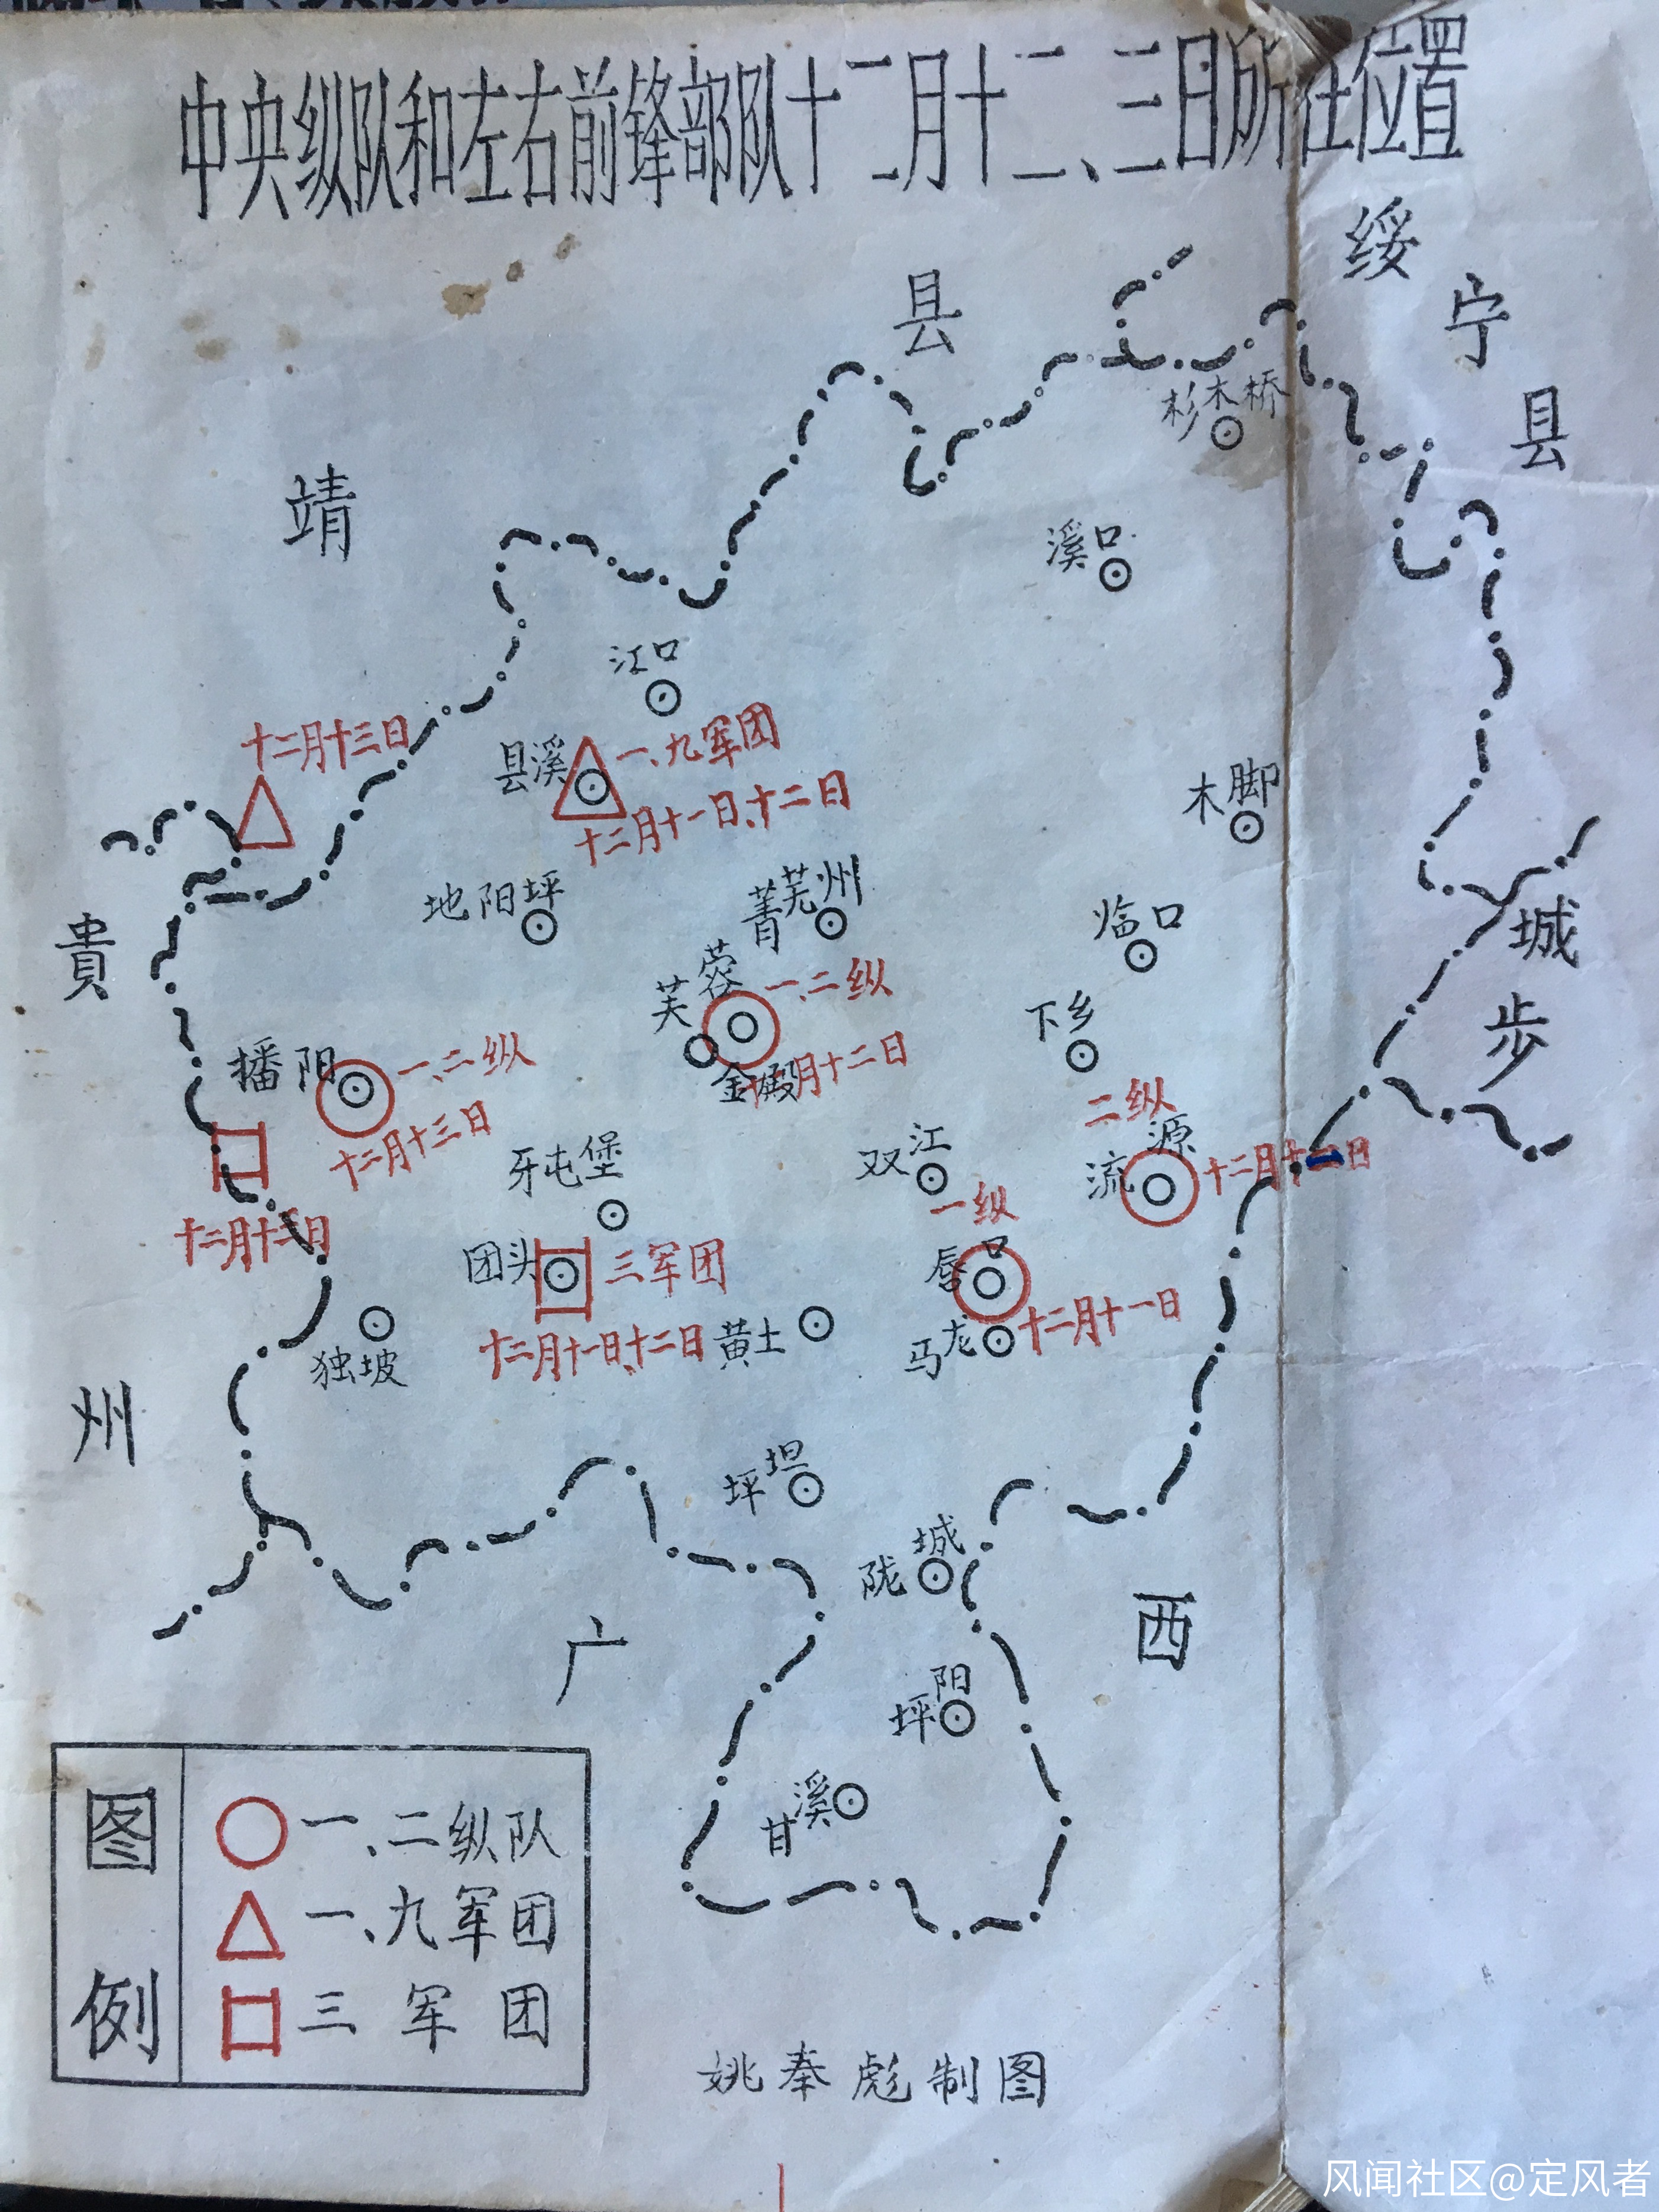 中央纵队和左右前锋部队十二月十二、三日所在位置
绥宁县
靖县
杉木桥
溪口
江口
十二月十三日
县溪
一、九军团
十二月十一日、十二日
木脚
地阳坪
菁芜州
临口
城步
貴州
芙蓉
一、二纵
金殿
月十二日
下乡
播阳
一、二纵
十二月十三日
二纵
流源
十二月十一日
双江
牙屯堡
一纵
唇口
十二月十一日
十二月十三日
团头
三军团
十二月十一日、十二日
黄土
马龙
独坡
坪坦
陇城
广西
坪阳
甘溪
图例
一、二纵队
一、九军团
三军团
姚奉彪制图
风闻社区@定风者